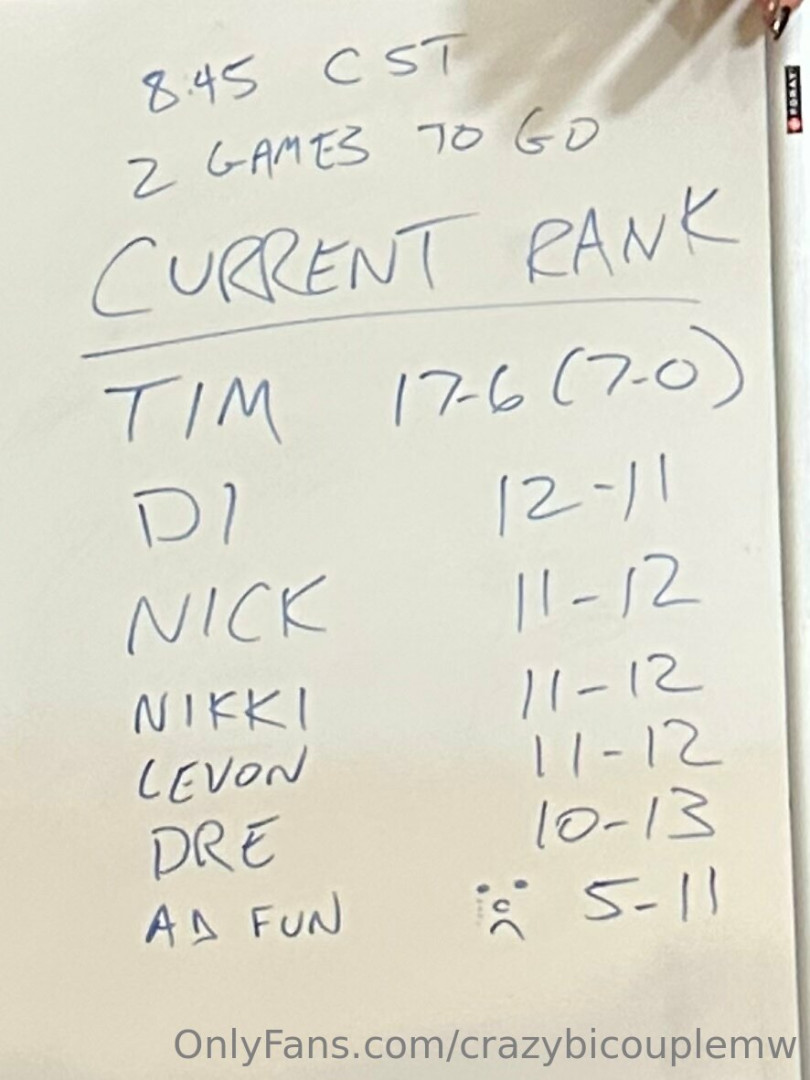 8:45 CST
2 GAMES TO GO
CURRENT RANK
TIM 17-6 (7-0)
DI 12-11
NICK 11-12
NIKKI 11-12
LEVON 11-12
DRE 10-13
AD FUN 5-11
FORAY
OnlyFans.com/crazybicouplemw